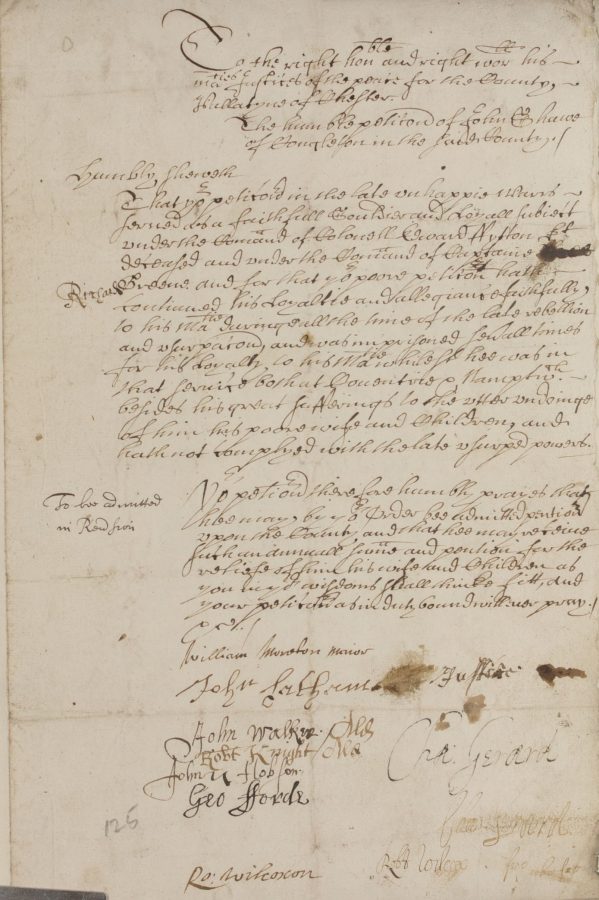 To the right hon:ble and right wor:ll his
ma:ties Justices of the peace for the County
Pallatyne of Chester.
The humble peticōn of John Shawe
of Congleton in the said County./
Humbly sheweth
That yo:r petic̄onr in the late unhappie Warrs
served as a faithfull Souldier and Loyall subiect
under the Com̄and of Colonell Edward Fytton
deceased and under the Com̄and of Captaine
Richard Greene, and for that yo:r poore petic̄onr hath
Continued his Loyaltie and allegiance faithfully,
to his Ma:tie dureinge all the time of the late rebellion
and usurpac̄on, and was imprisoned sev'all times
for his Loyalty to his Ma:tie whilest hee was in
that service both at Coventrie & Namptw:ch
besides his great sufferings to the utter undoinge
of him his poore wife and Children, and
hath not Complyed with the late usurped powers.
To bee admitted
in Pension
Yo:r petic̄onr therefore humbly prayes that
hee may, by yo:r Order bee admitted pention:r
upon the County, and that hee may receive
such an annuall sum̄e and pention for the
reliefe of him his wife and Children as
you in yo:r wisdoms shall thinke fitt, and
your petic̄onr as in duty bound will ever pray./
&c./
William Moreton maior
John Latham Justice
John Walker Ald
Robt Knight Ald
John Hobson
Geo Forde
Cha: Gerard
125
Ro: Wilcoxon